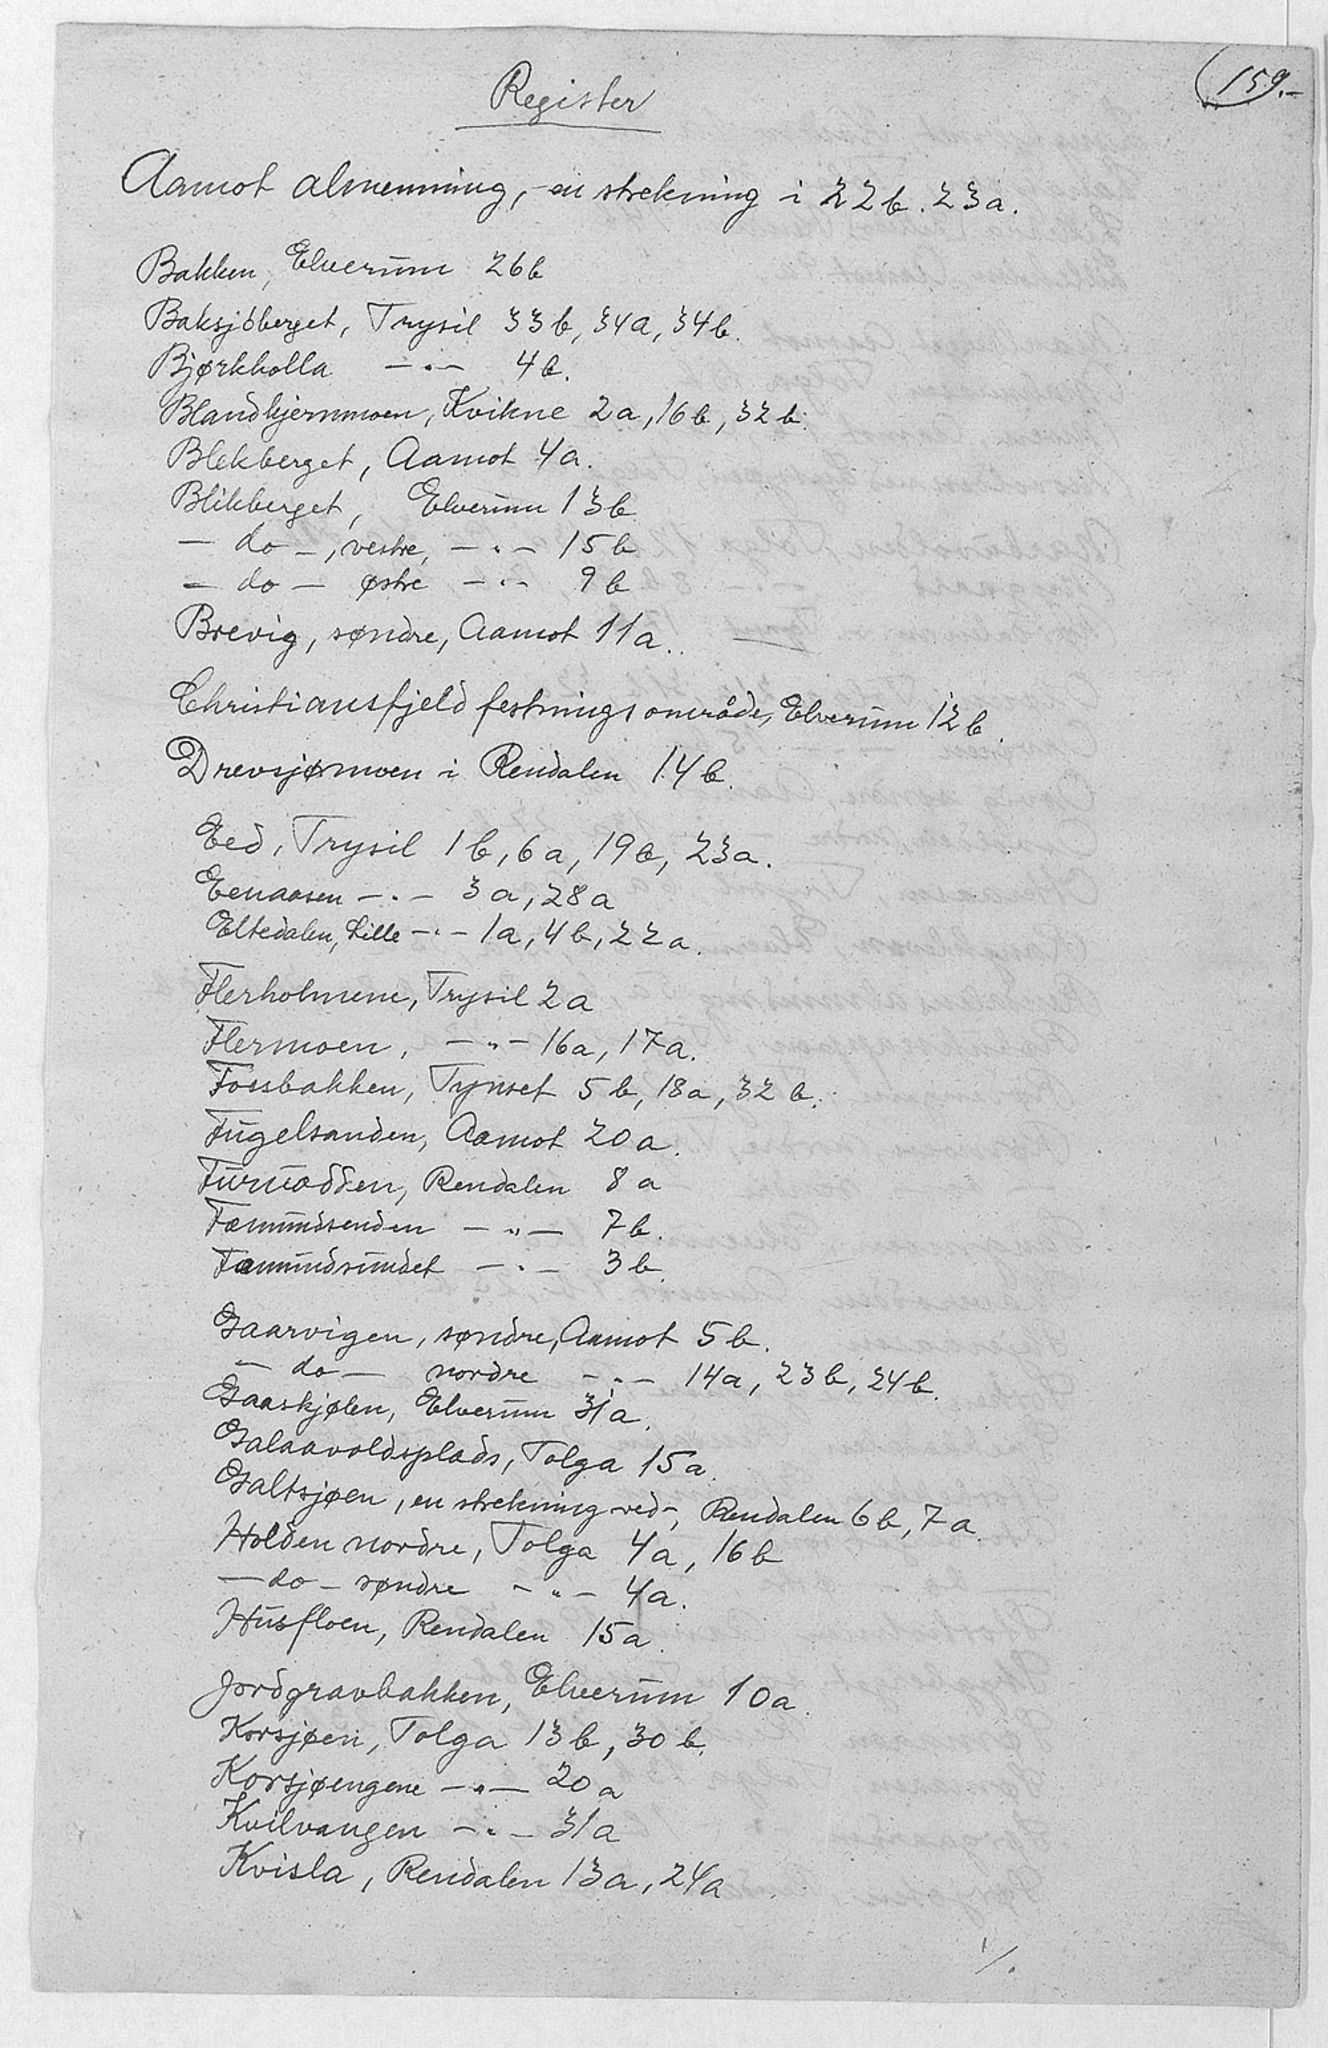 159.-
Register
Aamot almenning, en strekning i 22b. 23a.
Bakken, Elverum 26b
Baksjöberget, Trysil 33b, 34a, 34b.
Bjørkholla -"- 4b.
Blandkjernmoen, Kvikne 2a, 16b, 32b.
Blekberget, Aamot 4a.
Blikberget, Elverum 13b
- do -, vestre, -"- 15b
- do - østre -"- 9b
Brevig, søndre, Aamot 11a.
Christiansfjeld festningsområde, Elverum 12b.
Drevsjømoen i Rendalen 14b.
Eed, Trysil 1b, 6a, 19a, 23a.
Eenaasen -"- 3a, 28a
Eltedalen, Lille -"- 1a, 4b, 22a.
Flerholmene, Trysil 2a
Flermoen, -"- 16a, 17a.
Fossbakken, Tynset 5b, 18a, 32b.
Fugelsanden, Aamot 20a.
Furuodden, Rendalen 8a
Fæmundsenden -"- 7b.
Fæmundsundet -"- 3b.
Gaarvigen, søndre, Aamot 5b.
- do - nordre -"- 14a, 23b, 24b.
Gaaskjølen, Elverum 31a.
Galaavoldsplads, Tolga 15a.
Galtsjøen, en strekning ved-, Rendalen 6b, 7a.
Holden nordre, Tolga 4a, 16b
- do - søndre -"- 4a.
Husfloen, Rendalen 15a.
Jordgravbakken, Elverum 10a.
Korsjøen, Tolga 13b, 30b.
Korsjøengene -"- 20a
Kvilvangen -"- 31a
Kvisla, Rendalen 13a, 24a